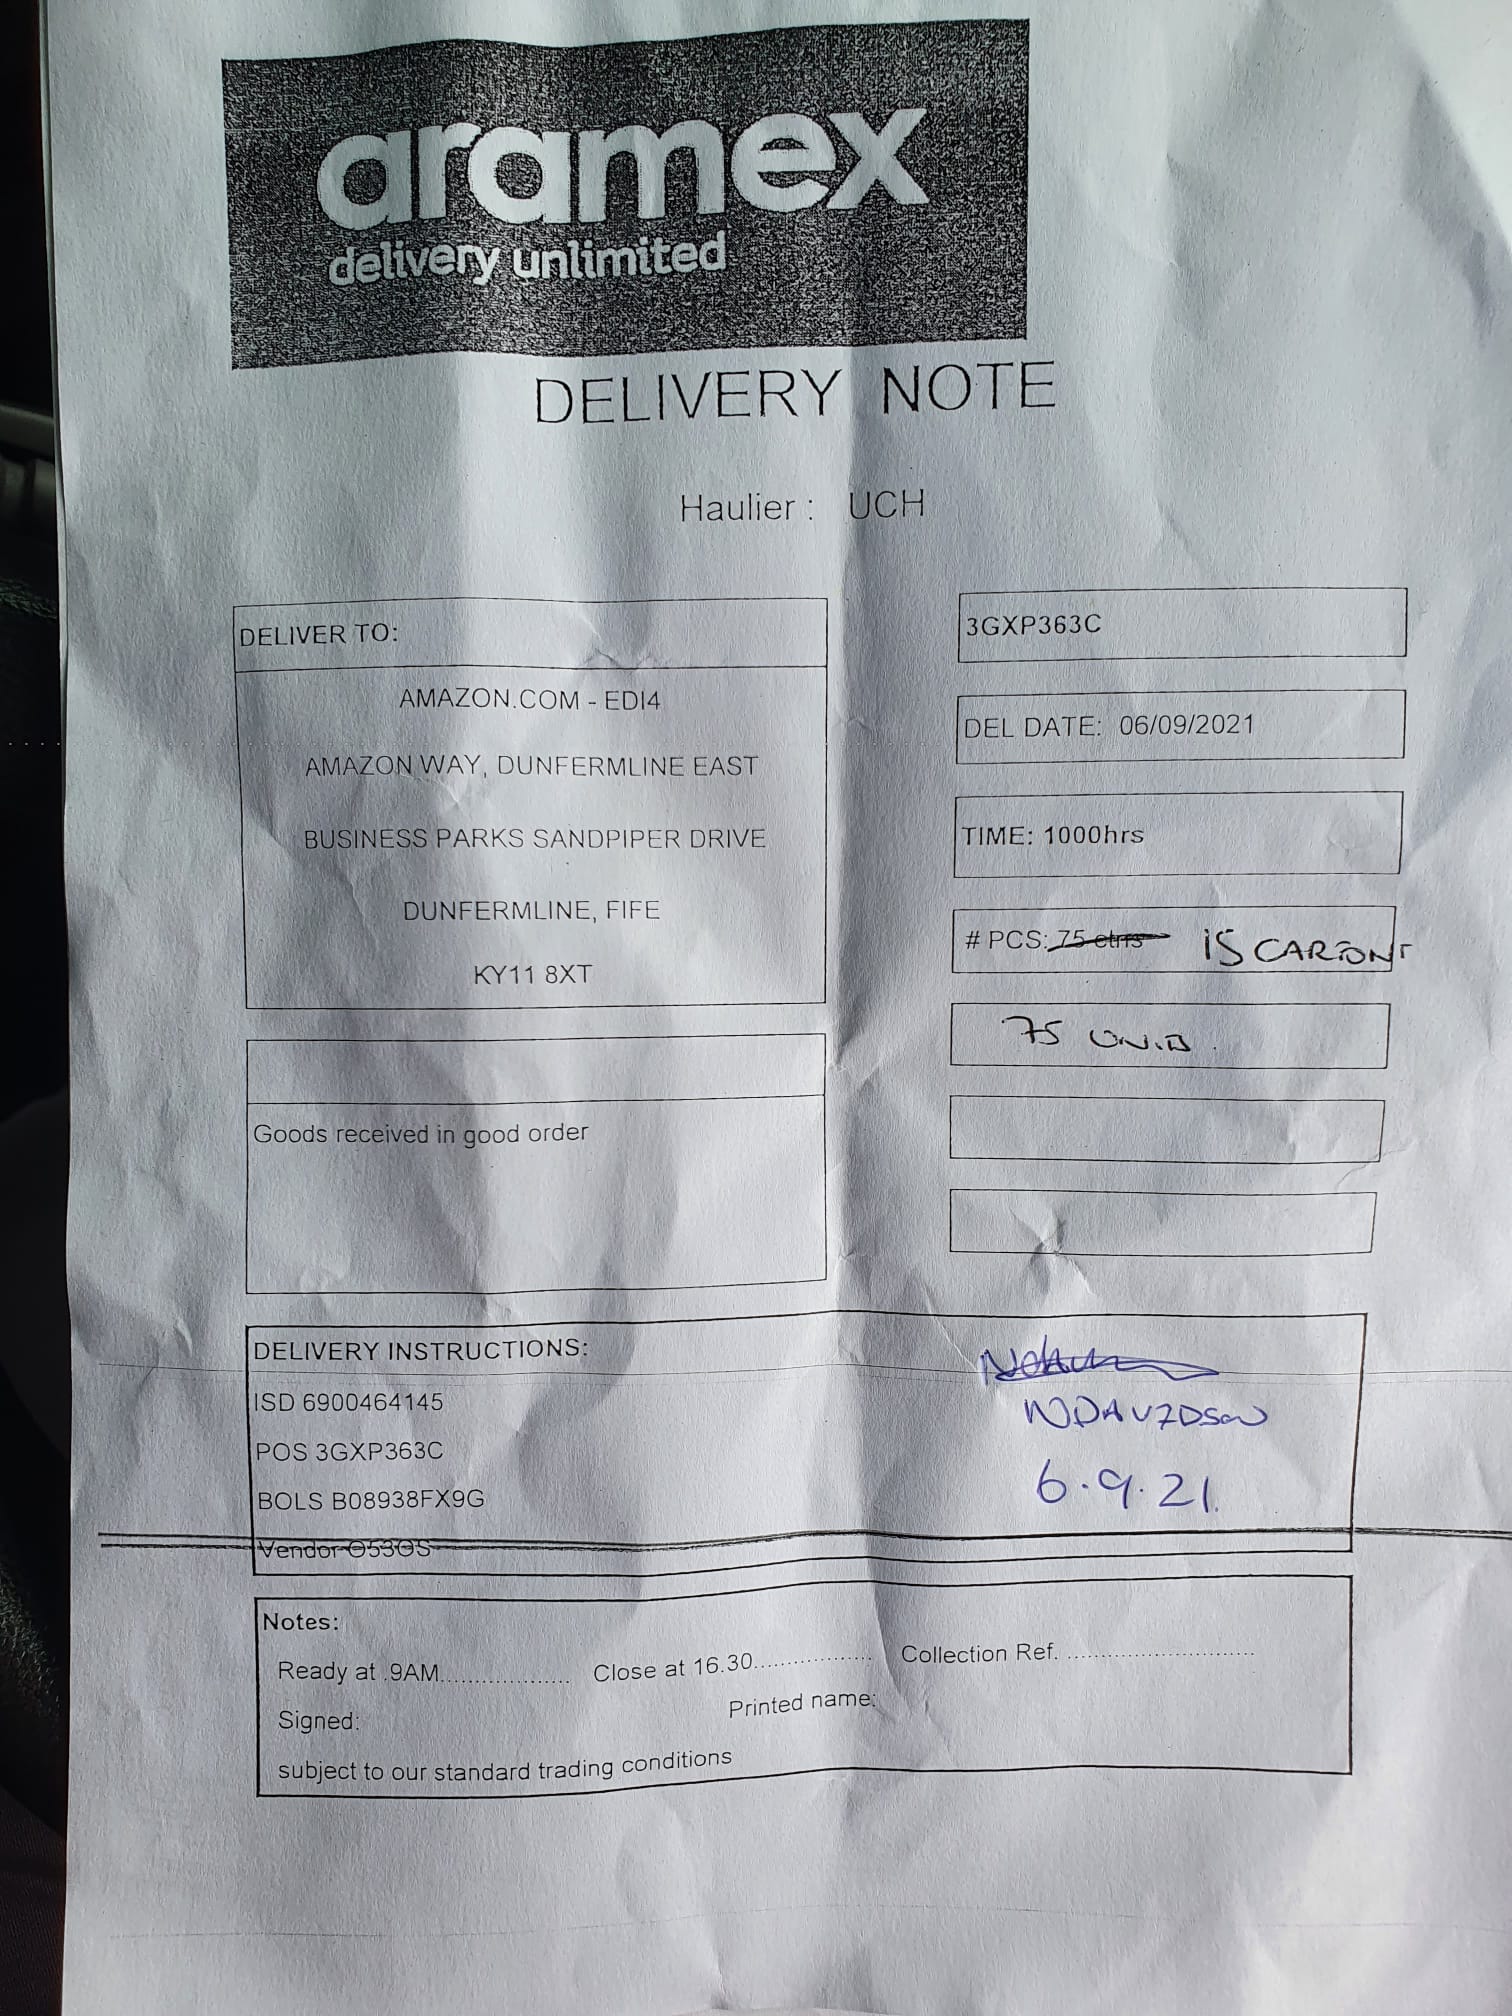 aramex
delivery unlimited
DELIVERY NOTE
Haulier : UCH
DELIVER TO:
AMAZON.COM - EDI4
AMAZON WAY, DUNFERMLINE EAST
BUSINESS PARKS SANDPIPER DRIVE
DUNFERMLINE, FIFE
KY11 8XT
3GXP363C
DEL DATE: 06/09/2021
TIME: 1000hrs
# PCS: 75 ctns 15 CARTONS
75 UNITS
Goods received in good order
DELIVERY INSTRUCTIONS:
ISD 6900464145
POS 3GXP363C
BOLS B08938FX9G
Vendor O53OS
6.9.21.
Notes:
Ready at .9AM................... Close at 16.30.................. Collection Ref. ............................
Signed: Printed name:
subject to our standard trading conditions